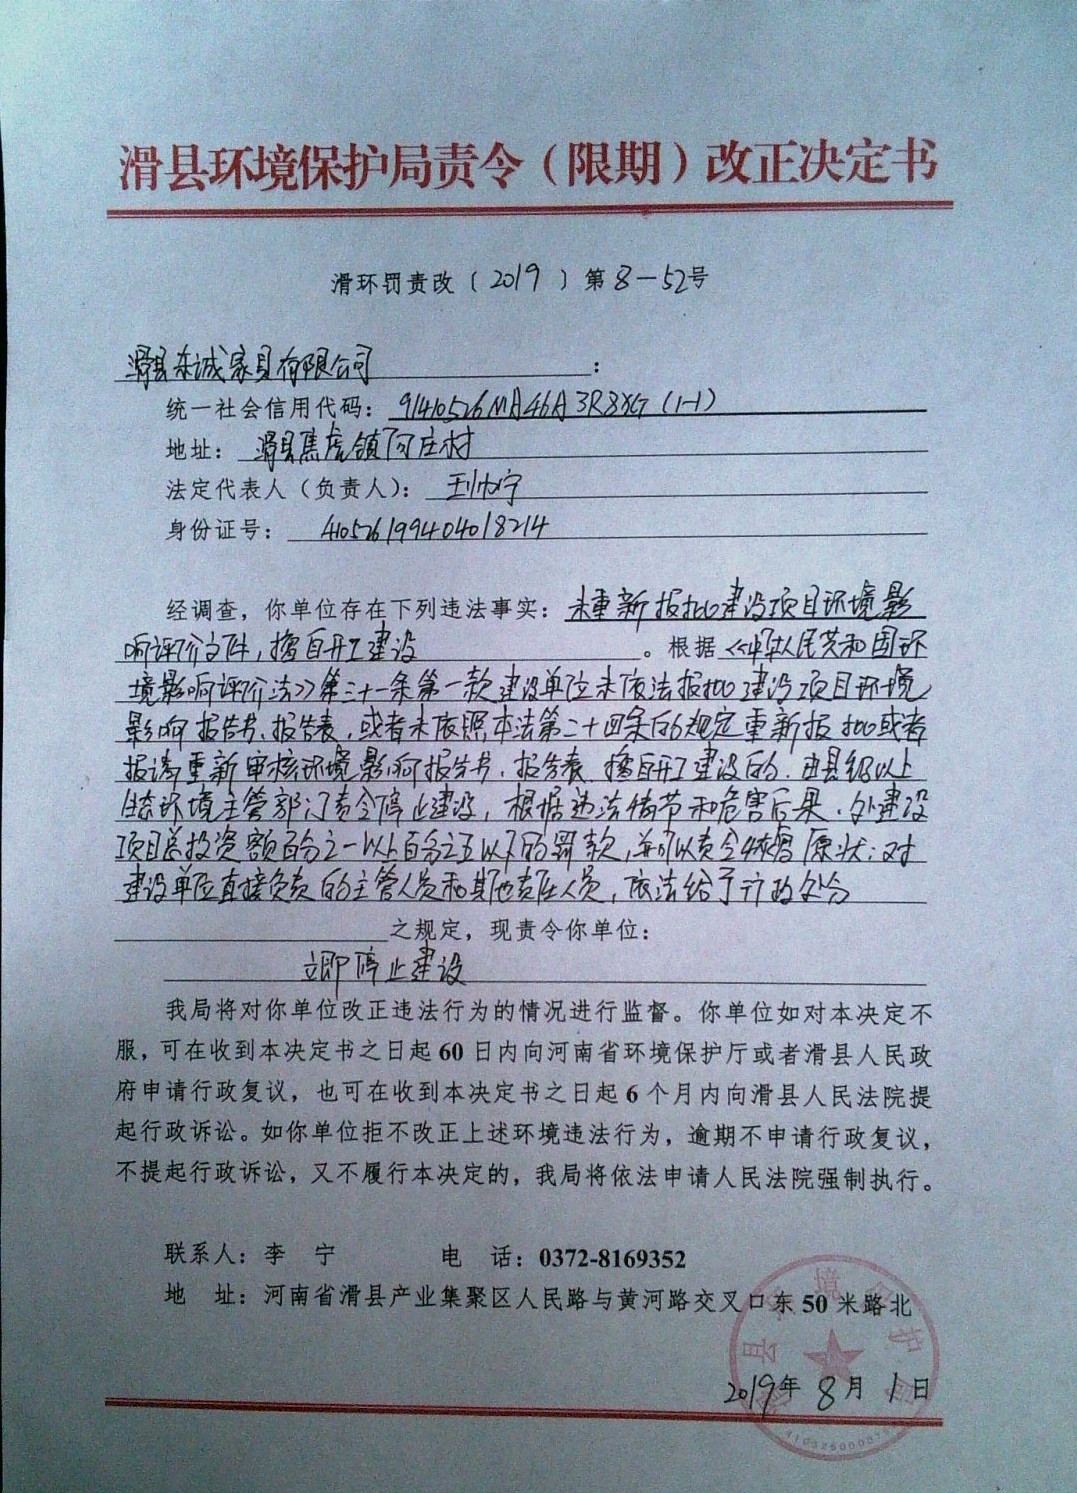 滑县环境保护局责令（限期）改正决定书
滑环罚责改〔2019〕第8-52号
滑县东诚家具有限公司：
统一社会信用代码：91410526MA46A3R38XG（1-1）
地址：滑县焦虎镇阿庄村
法定代表人（负责人）：
身份证号：410526199404018214
经调查，你单位存在下列违法事实：未重新报批建设项目环境影
响评价文件，擅自开工建设。根据《中华人民共和国环
境影响评价法》第三十一条第一款建设单位未依法报批建设项目环境
影响报告书、报告表，或者未依照本法第二十四条的规定重新报批或者
报请重新审核环境影响报告书、报告表，擅自开工建设的，由县级以上
生态环境主管部门责令停止建设，根据违法情节和危害后果，处建设
项目总投资额百分之一以上百分之五以下的罚款，并可以责令恢复原状；对
建设单位直接负责的主管人员和其他责任人员，依法给予行政处分
之规定，现责令你单位：
立即停止建设
我局将对你单位改正违法行为的情况进行监督。你单位如对本决定不
服，可在收到本决定书之日起60日内向河南省环境保护厅或者滑县人民政
府申请行政复议，也可在收到本决定书之日起6个月内向滑县人民法院提
起行政诉讼。如你单位拒不改正上述环境违法行为，逾期不申请行政复议，
不提起行政诉讼，又不履行本决定的，我局将依法申请人民法院强制执行。
联系人：李 宁 电 话：0372-8169352
地 址：河南省滑县产业集聚区人民路与黄河路交叉口东50米路北
2019年8月1日